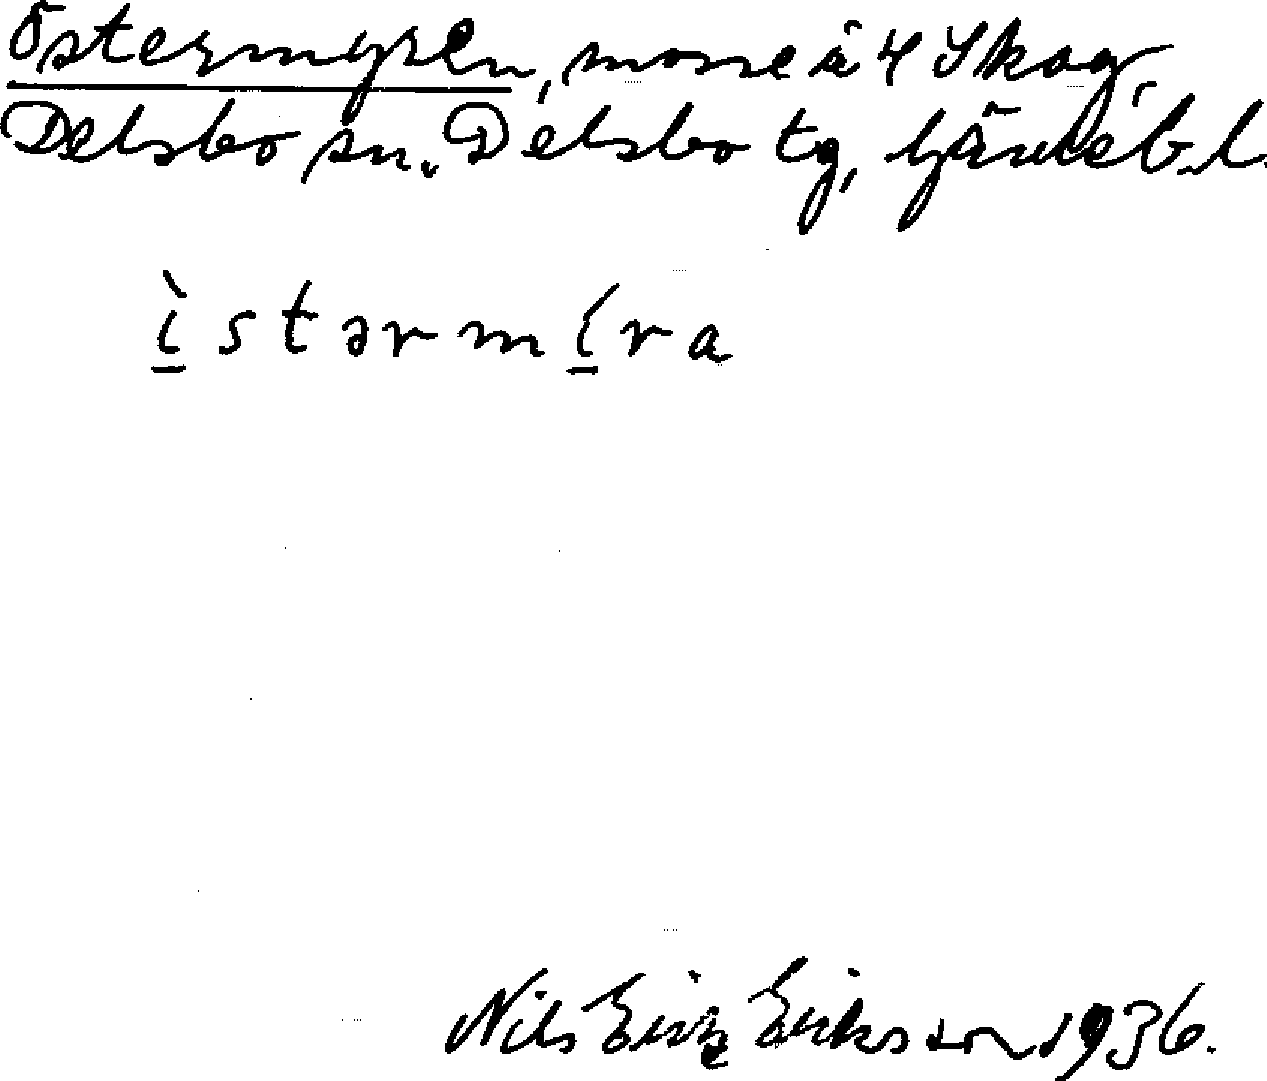 Östermyren, mosse å 4 Skog,
Delsbo sn. Delsbo tg, Gävleb. l.
ìstərmíra
Nils Erik Eriksson 1936.